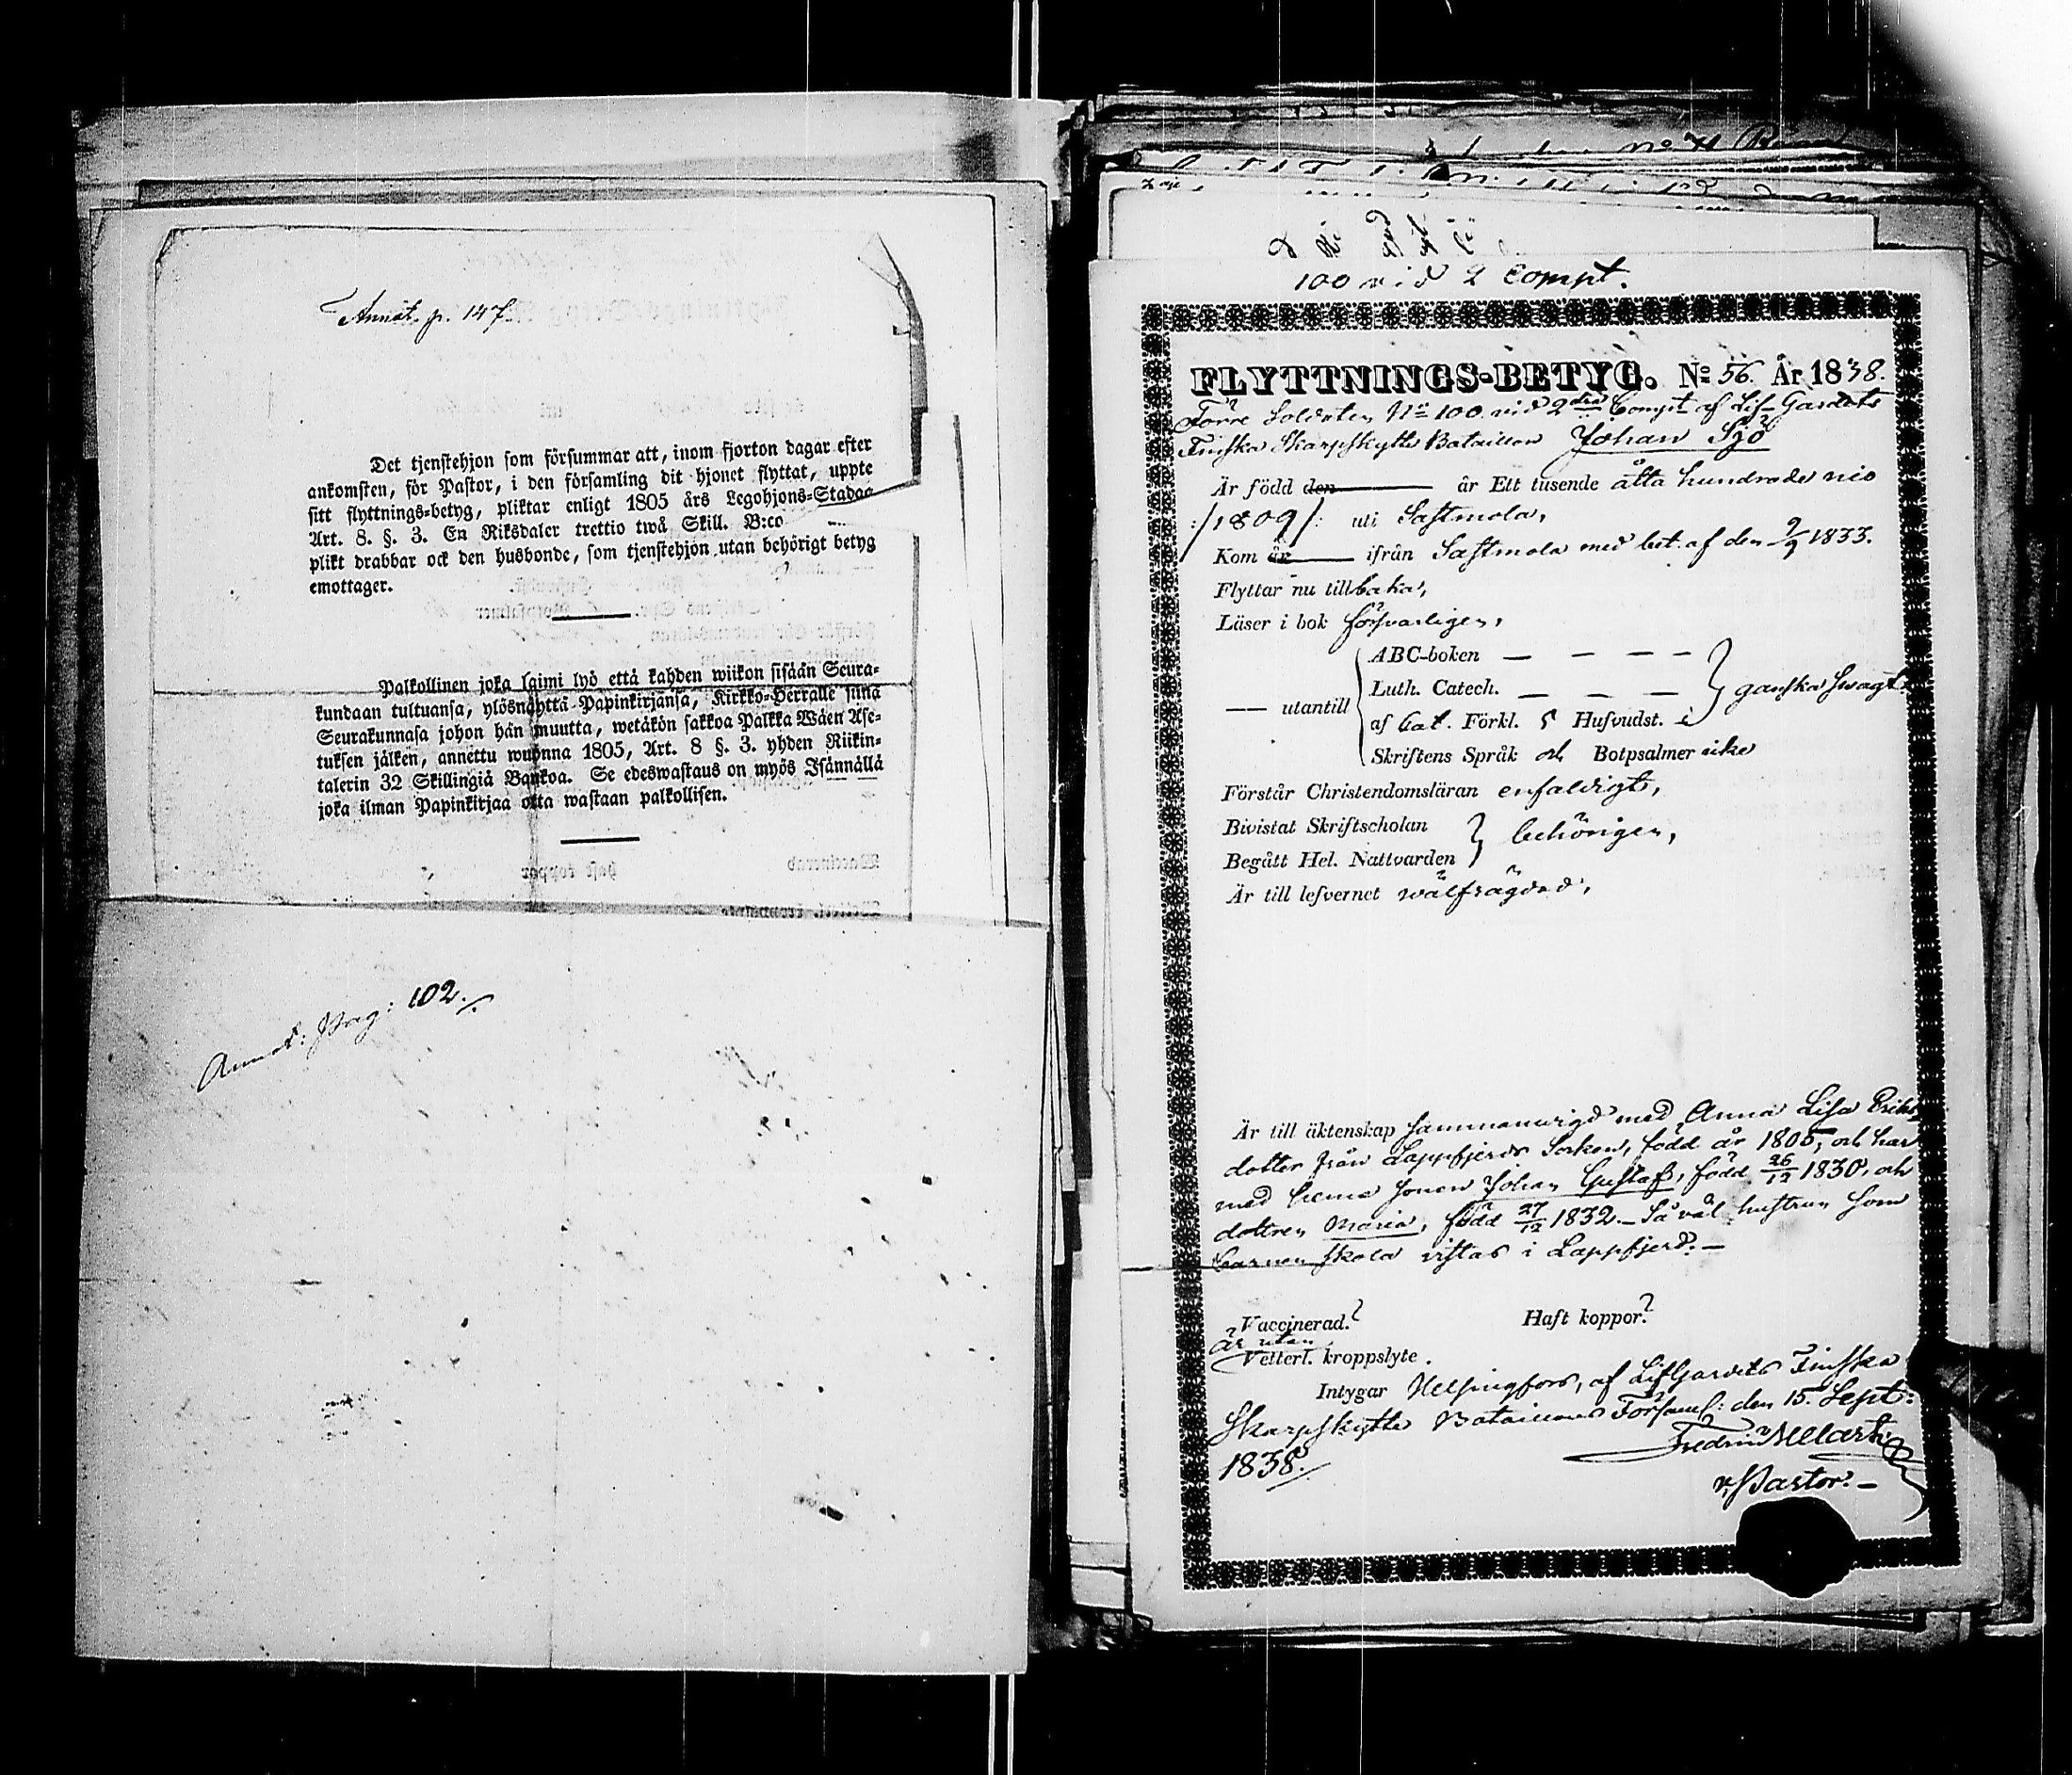 Annot. p. 147.
Det tjenstehjon som försummar att, inom fjorton dagar efter
ankomsten, för Pastor, i den församling dit hjonet flyttat, uppte
sitt flyttnings-betyg, pliktar enligt 1805 års Legohjons-Stadga
Art. 8. §. 3. En Riksdaler trettio twå Skill. B:co
plikt drabbar ock den husbonde, som tjenstehjon utan behörigt betyg
emottager.
Palkollinen joka laimi lyö että kahden wiikon sisään Seura-
kundaan tultuansa, ylösnäyttä Papinkirjansa, Kirkko-Herralle siinä
Seurakunnasa johon hän muutta, wetäkön sakkoa Palkka Wäen Ase-
tuksen jälken, annettu wuonna 1805, Art. 8 §. 3. yhden Riikin-
talerin 32 Skillingiä Bankoa. Se edeswastaus on myös Isännällä
joka ilman Papinkirjaa otta wastaan palkollisen.
Annot: Pag: 102.
100 vid 2 Compt.
FLYTTNINGS-BETYG. No 56. År 1838.
Förre Soldaten No 100 vid 2dra Compt af Lif-Gardets
Finska Skarpskytte Bataillon Johan Sjö
Är född den år Ett tusende åtta hundrade nio
/:1809/: uti Sastmola,
Kom år ifrån Sastmola med bet. af den 9/9 1833.
Flyttar nu tillbaka,
Läser i bok försvarligen,
ABC-boken
Luth. Catech.
utantill
af Cat. Förkl. 5 Hufvudst. ganska svagt
Skriftens Språk och Botpsalmer icke
Förstår Christendomsläran enfaldigt,
Bivistat Skriftscholan
behörigen,
Begått Hel. Nattvarden
Är till lefvernet välfrägdad,
Är till äktenskap sammanvigd med Anna Lisa Eriks
dotter från Lappfjerds Socken, född år 1805, och har
med henne sonen Johan Gustaf, född 26/12 1830, och
dottren Maria, född 27/12 1832. – Så väl hustrun som
barnen skola vistas i Lappfjerd. –
Vaccinerad? Haft koppor?
är utan
Vetterl. kroppslyte.
Intygar Helsingfors, af Lifgardets Finska
Skarpskytte Bataillons Församl: den 15. Sept:
1838.
v. Pastor. –